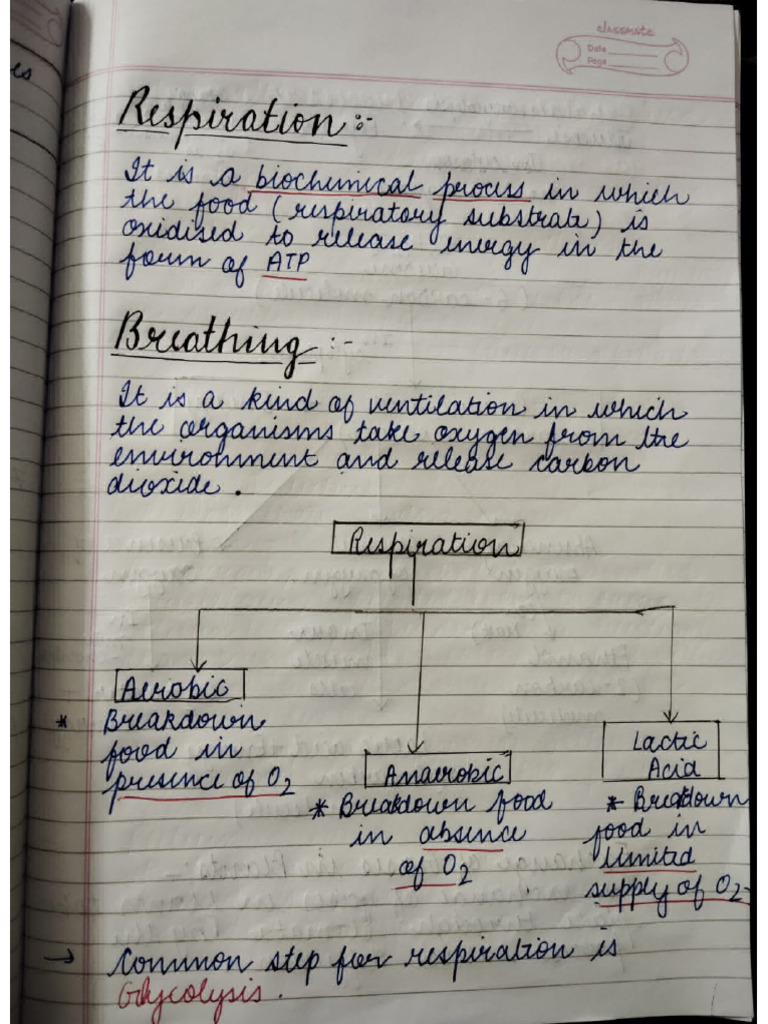 classmate
Date
Page
es
Respiration :-
It is a biochemical process in which
the food (respiratory substrate) is
oxidised to release energy in the
form of ATP
Breathing :-
It is a kind of ventilation in which
the organisms take oxygen from the
environment and release carbon
dioxide.
Respiration
Aerobic
* Breakdown
food in
presence of O2
Anaerobic
* Breakdown food
in absence
of O2
Lactic
Acid
* Breakdown
food in
limited
supply of O2
→ Common step for respiration is
Glycolysis.